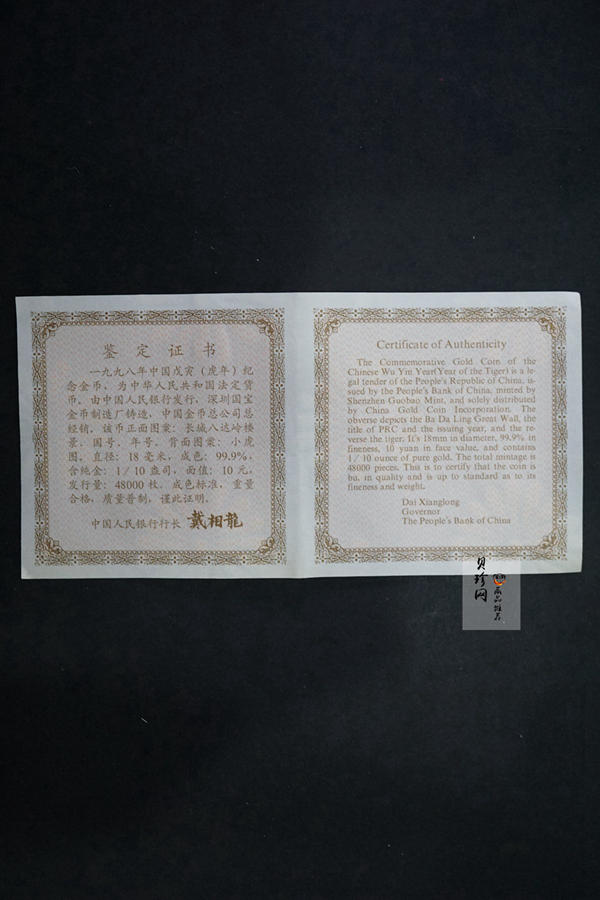 鉴定证书
一九九八年中国戊寅（虎年）纪
念金币，为中华人民共和国法定货
币，由中国人民银行发行，深圳国宝
金币制造厂铸造，中国金币总公司总
经销，该币正面图案：长城八达岭楼
景，国号，年号，背面图案：小虎
图，直径：18毫米，成色：99.9%，
含纯金：1/10盎司，面值：10元，
发行量：48000枚。成色标准，重量
合格，质量普制，谨此证明。
中国人民银行行长 戴相龍
Certificate of Authenticity
The Commemorative Gold Coin of the
Chinese Wu Yin Year(Year of the Tiger) is a le-
gal tender of the People's Republic of China, is-
sued by the People's Bank of China, minted by
Shenzhen Guobao Mint, and solely distributed
by China Gold Coin Incorporation. The
obverse depicts the Ba Da Ling Great Wall, the
title of PRC and the issuing year, and the re-
verse the tiger. It's 18mm in diameter, 99.9% in
fineness, 10 yuan in face value, and contains
1/10 ounce of pure gold. The total mintage is
48000 pieces. This is to certify that the coin is
bu. in quality and is up to standard as to its
fineness and weight.
Dai Xianglong
Governor
The People's Bank of China
贝珍网
商品推荐